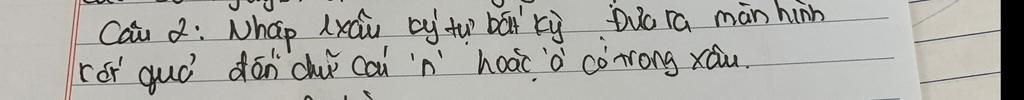 Câu 2: Nhập 1 xâu ký tự bất kỳ. Đưa ra màn hình
kết quả đếm chữ cái 'n' hoặc 'o' có trong xâu.